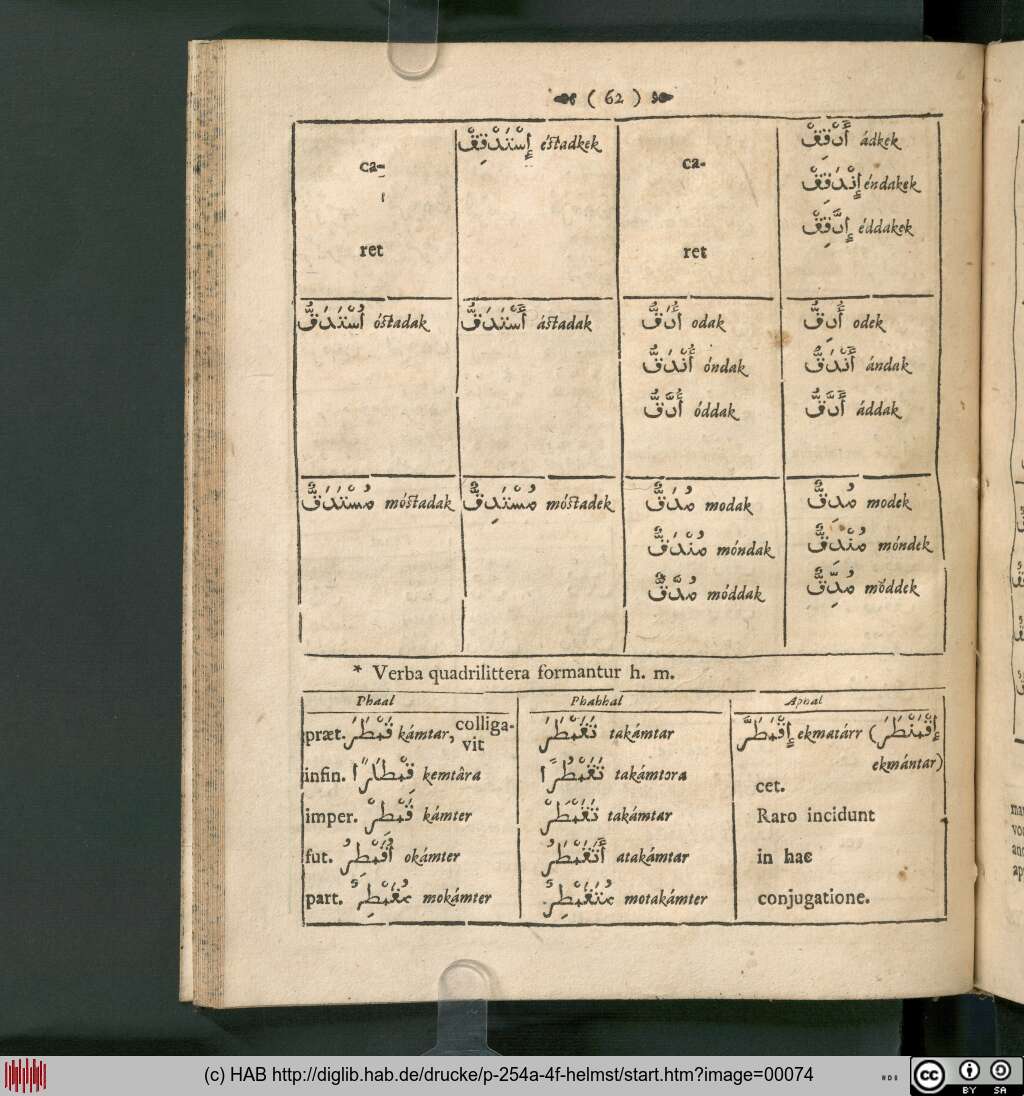 ( 62 )
ca-
إِسْتَدْقِقْ éstadkek
ca-
أَدْقِقْ ádkek
إِنْدَقِقْ éndakek
إِدَّقِقْ éddakek
ret
ret
أُسْتَدَقُّ óstadak
أَسْتَدَقُّ ástadak
أُدَقُّ odak
أَدِقُّ odek
أُنْدَقُّ óndak
أَنْدَقُّ ándak
أُدَّقُّ óddak
أَدَّقُّ áddak
مُسْتَدَقٌّ móstadak
مُسْتَدِقٌّ móstadek
مُدَقٌّ modak
مُدِقٌّ modek
مُنْدَقٌّ móndak
مُنْدِقٌّ móndek
مُدَّقٌّ móddak
مُدِّقٌّ móddek
* Verba quadrilittera formantur h. m.
Phaal
Phabhal
Aphal
præt. قَمْطَرَ kámtar, colliga-
vit
تَقَمْطَرَ takámtar
إِقْمَطَرَّ ekmatárr (إِقْمَنْطَرَ
ekmántar)
infin. قِمْطَارًا kemtâra
تَقَمْطُرًا takámtora
cet.
imper. قَمْطِرْ kámter
تَقَمْطَرْ takámtar
Raro incidunt
fut. أُقَمْطِرُ okámter
أَتَقَمْطَرُ atakámtar
in hac
part. مُقَمْطِرٌ mokámter
مُتَقَمْطِرٌ motakámter
conjugatione.
(c) HAB http://diglib.hab.de/drucke/p-254a-4f-helmst/start.htm?image=00074
cc BY SA